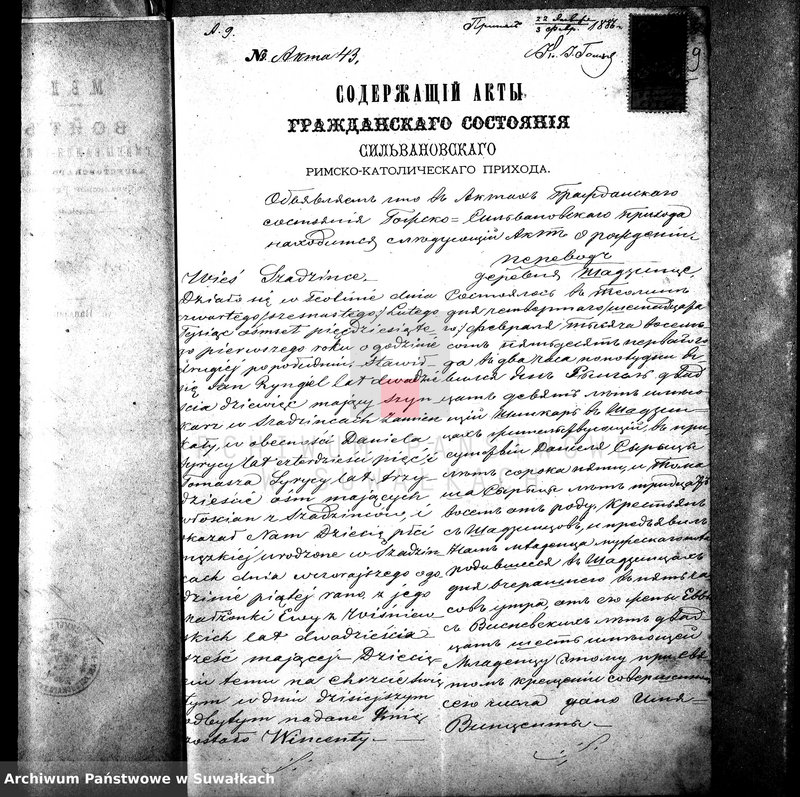 А. 9.
№ Акта 43.
22 Января
3 Февр. 1886 г.
9
СОДЕРЖАЩІЙ АКТЫ
ГРАЖДАНСКАГО СОСТОЯНІЯ
СИЛЬВАНОВСКАГО
РИМСКО-КАТОЛИЧЕСКАГО ПРИХОДА.
Объявляетъ что въ Актахъ Гражданскаго
состоянія Сильвановскаго прихода
находится слѣдующій Актъ о рожденіи
Wieś Szadzińce
Działo się w Teolinie dnia
czwartego/szesnastego/Lutego
Tysiąc ośmset pięćdziesiąte
go pierwszego roku o godzinie
drugiej po południu, Stawił
się Jan Ryngel lat dwadzie
ścia dziewięć mający szyn
karz w Szadzincach zamiesz
kały, w obecności Daniela
Syrycy lat czterdzieści pięć i
Tomasza Syrycy lat trzy
dzieście ośm mających
włościan z Szadzińców, i
okazał Nam Dziecię płci
męzkiej urodzone w Szadziń
cach dnia wczorajszego o go
dzinie piątej rano, z jego
małżonki Ewy z Wiśniew
skich lat dwadzieścia
sześć mającej. Dziecię
ciu temu na chrzcie świę
tym w dniu dzisiejszym
odbytym nadane Imię
zostało Wincenty.
переводъ
деревня Шадзинце.
Состоялось въ Теолинѣ
дня четвертаго/шестнадцата
го/февраля тысяча восемь
сотъ пятьдесятъ перваго го
да въ два часа пополудни Я
вился Янъ Рынгель двад
цать девять лѣтъ имѣю
щій Шинкаръ въ Шадзин
цахъ жительствующій въ при
сутствіи Даніеля Сырыцы
лѣтъ сорока пяти, и Тома
ша Сырыцы лѣтъ тридцать
восемь отъ роду, Крестьянъ
съ Шадзинцовъ, и предъявилъ
Намъ младенца мужескаго пола
родившееся въ Шадзинцахъ
дня вчерашнего въ пять ча
совъ утра, отъ его жены Еввы
съ Висневскихъ лѣтъ двад
цать шесть имѣющей
Младенцу этому при свя
томъ крещеніи совершенномъ
сего числа дано Имя
Винценты.
Archiwum Państwowe w Suwałkach